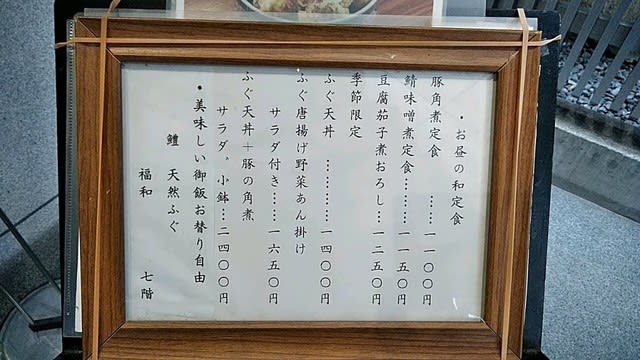 ・お昼の和定食
豚角煮定食 ……一一〇〇円
鯖味噌煮定食………一一五〇円
豆腐茄子煮おろし…一二五〇円
季節限定
ふぐ天丼 …………一四〇〇円
ふぐ唐揚げ野菜あん掛け
サラダ付き……一六五〇円
ふぐ天丼＋豚の角煮
サラダ〟小鉢…二四〇〇円
・美味しい御飯お替り自由
鱧 天然ふぐ
福和 七階